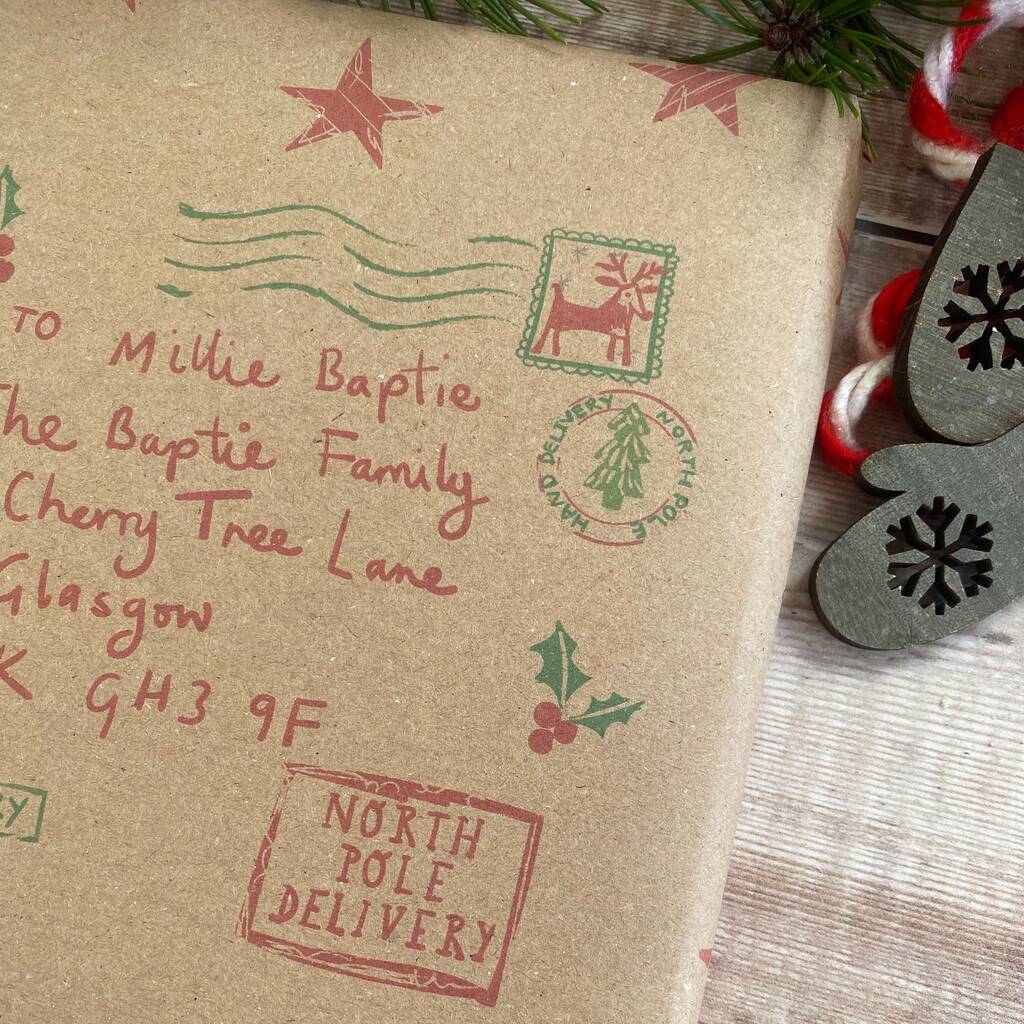 TO Millie Baptie
The Baptie Family
Cherry Tree Lane
Glasgow
K GH3 9F
HAND DELIVERY NORTH POLE
RY
NORTH
POLE
DELIVERY